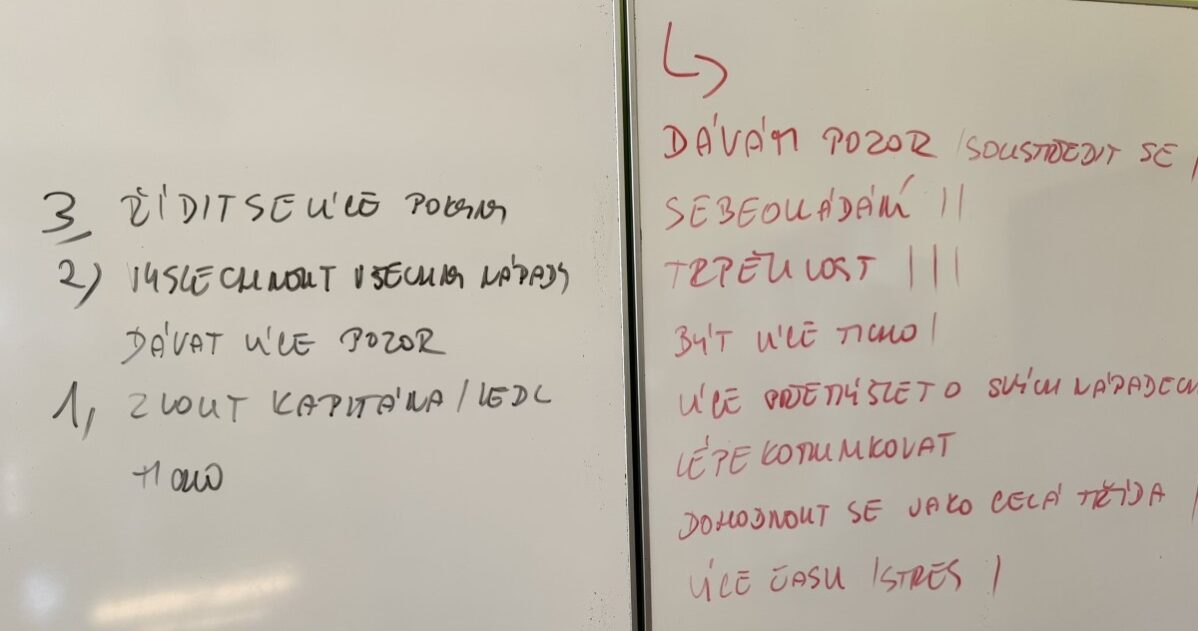 3, ŘÍDIT SE VÍCE POKYNY
2) VYSLECHNOUT VŠECHNY NÁPADY
DÁVAT VÍCE POZOR
1, ZVOLIT KAPITÁNA / VEDC
TICHO
DÁVÁM POZOR / SOUSTŘEDIT SE |
SEBEOVLÁDÁNÍ ||
TRPĚLIVOST |||
BÝT VÍCE TICHO |
VÍCE PŘEMÝŠLET O SVÝCH NÁPADECH
LÉPE KOMUNIKOVAT
DOHODNOUT SE JAKO CELÁ TŘÍDA |
VÍCE ČASU / STRES |